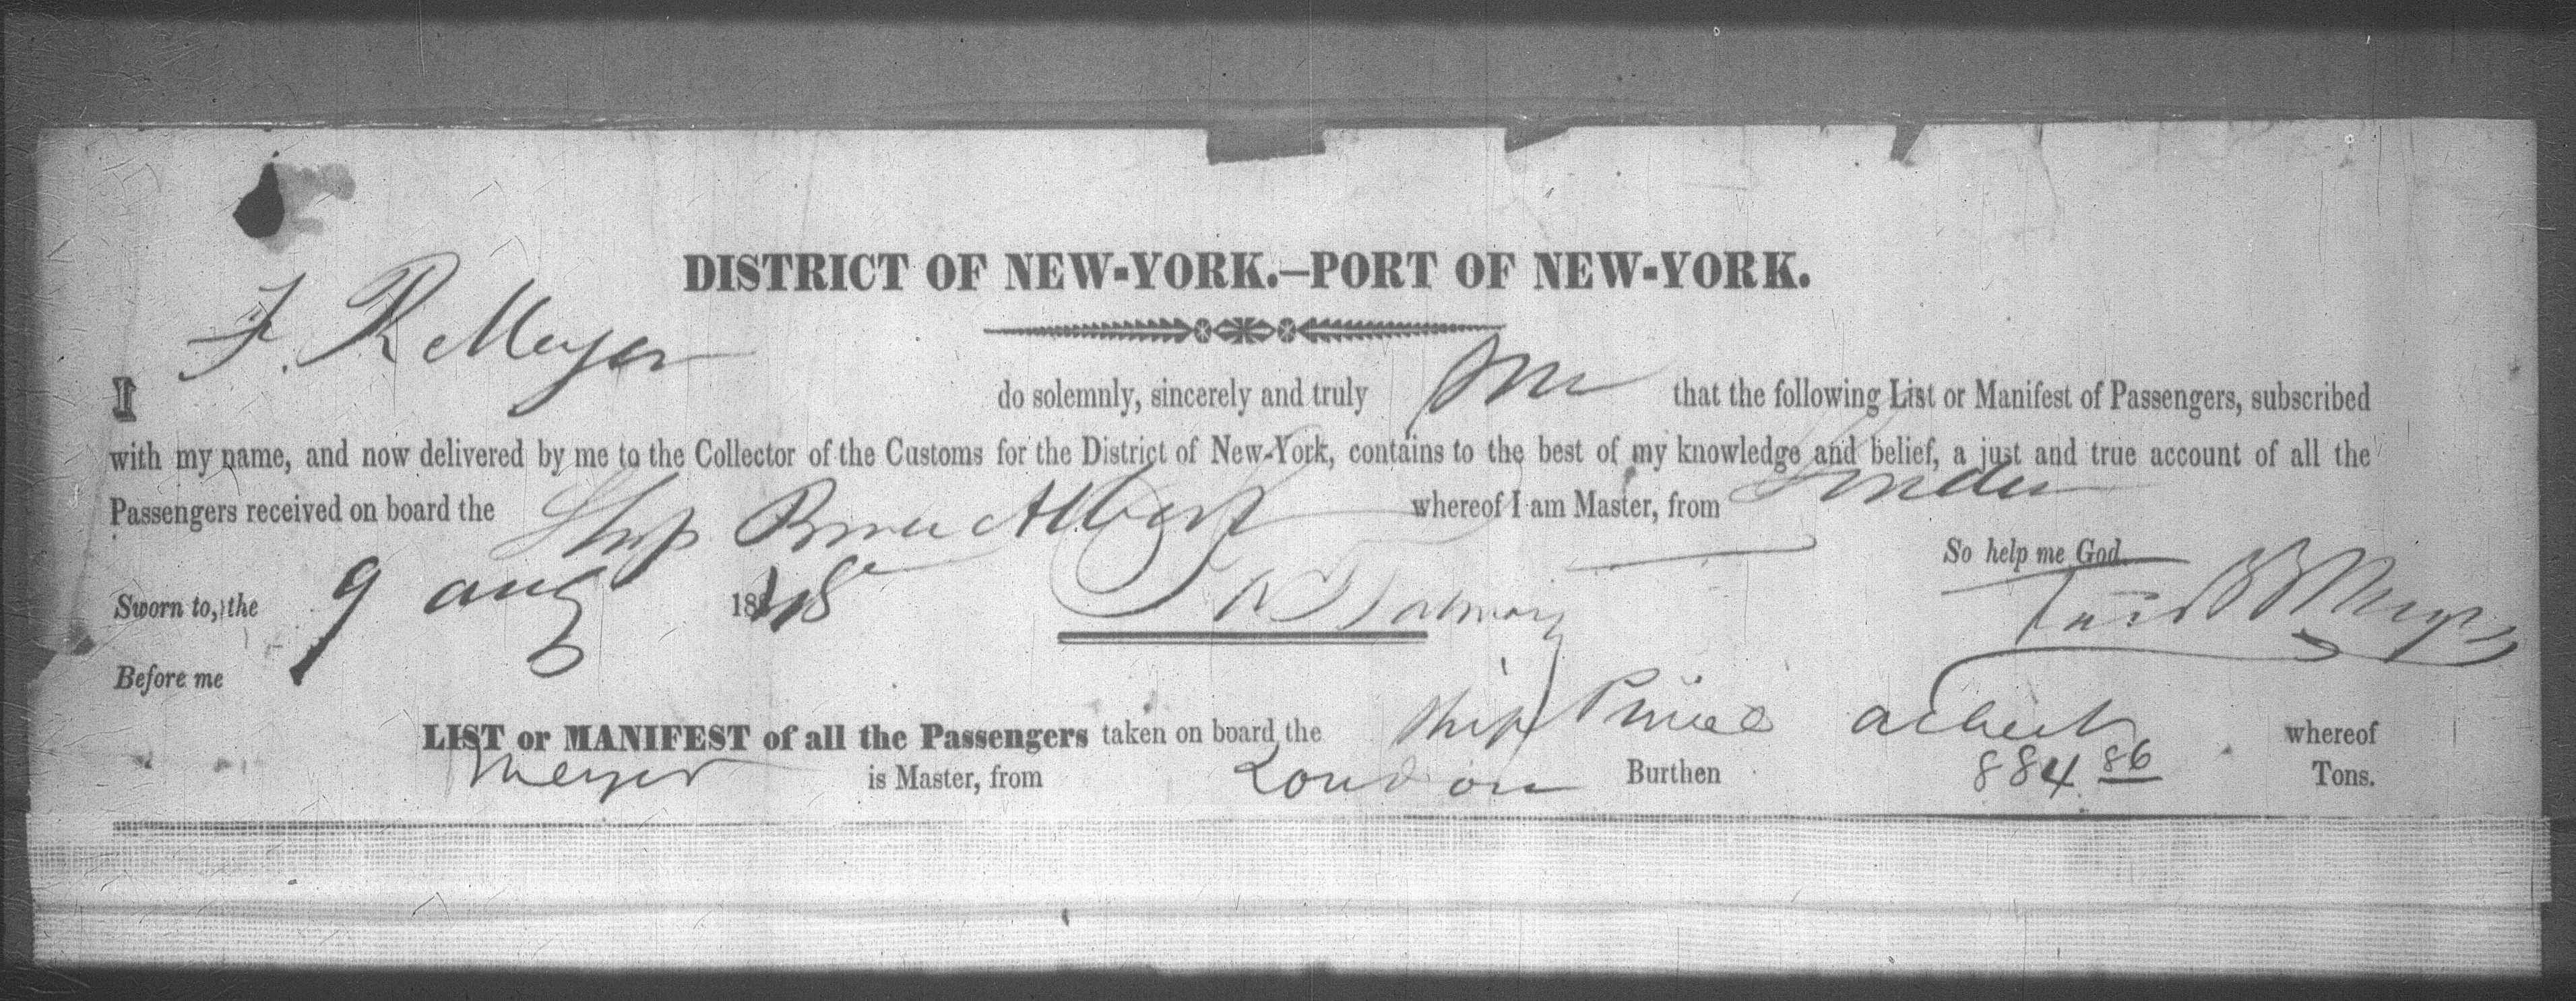 DISTRICT OF NEW-YORK.—PORT OF NEW-YORK.
I F. R Meyer do solemnly, sincerely and truly that the following List or Manifest of Passengers, subscribed
with my name, and now delivered by me to the Collector of the Customs for the District of New-York, contains to the best of my knowledge and belief, a just and true account of all the
Passengers received on board the Ship Prince Albert whereof I am Master, from London
So help me God.
Sworn to, the 9 Aug 1848
Before me
LIST or MANIFEST of all the Passengers taken on board the Ship Prince Albert whereof
Meyer is Master, from London Burthen 884 86 Tons.